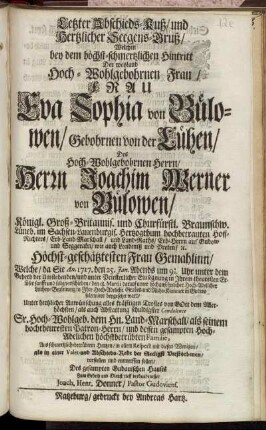 Letzter Abschieds-Kuß/ und
Hertzlicher Seegens-Gruß/
Welchen
bey dem höchst-schmertzlichen Hintritt
Der weyland
Hoch-Wohlgebohrnen Frau/
FRAU
Eva Sophia von Bülo-
wen/ Gebohrnen von der Lühen/
Des
Hoch-Wohlgebohrnen Herrn/
Herrn Joachim Werner
von Bülowen/
Königl. Groß-Britannis. und Churfürstl. Braunschw.
Lüneb. im Sachsen-Lauenburgis. Hertzogthum hochbetrauten Hoff-
Richters/ Erb-Land-Marschall/ und Land-Raths/ Erb-Herrn auf Gudow
und Seggerahn/ wie auch Landrehn und Preten/ ꝛc.
Höchst-geschätztesten Frau Gemahlinn/
Welche/ da Sie Ao. 1717. den 25. Febr. Abends um 9¼ Uhr unter dem
Gebeth der Umstehenden/ und unter Priesterlicher Einsegnung in Ihrem Heyland Je-
vermerckt ward/
Unter hertzlicher Anwünschung alles kräfftigen Trostes von Gott dem Aller-
höchsten/ als auch Abstattung schuldigster Condolence
Sr. Hoch-Wohlgeb. dem Hn. Land-Marschall/ als seinem
hochtheuresten Patron-Herrn/ und dessen gesampten Hoch-
Adelichen höchstwehrten Familie/
als in einer Valet- und Abschieds-Rede der Seeligst Verstorbenen/
vorstellen und entwerffen sollen/
Des gesampten Gudauischen Hauses
Joach. Henr. Donner/ Pastor Gudoviens.
Ratzeburg/ gedruckt bey Andreas Hartz.